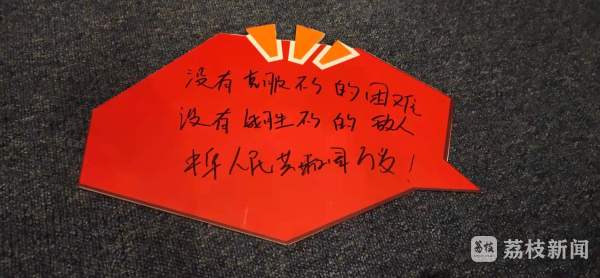 没有克服不了的困难
没有战胜不了的敌人
中华人民共和国万岁！
荔枝 荔枝新闻